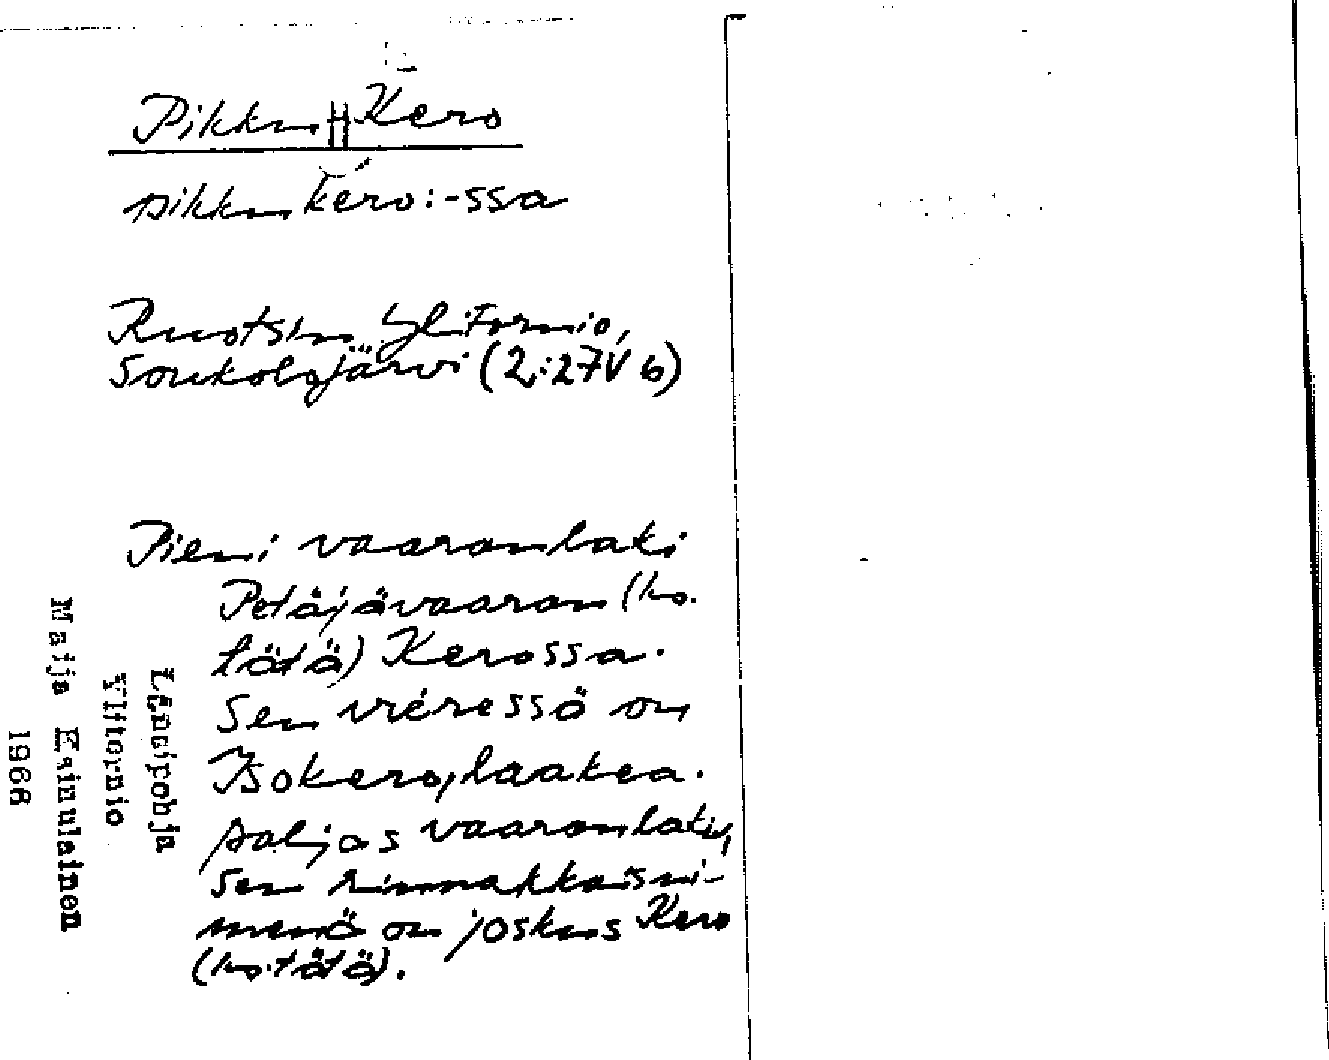 Pikku Kero
pikku kéro: -ssa
Ruotsin Ylitornio,
Soukolojärvi (2:27V b)
Pieni vaaranlaki
Petäjävaaran (ks.
tätä) Kerossa.
Sen vieressä on
Isokero, laakea.
paljas vaaranlaki,
sen rinnakkaisni-
menä on joskus Kero
(ks. tätä).
Länsipohja
Ylitornio
Maija Kainulainen
1968